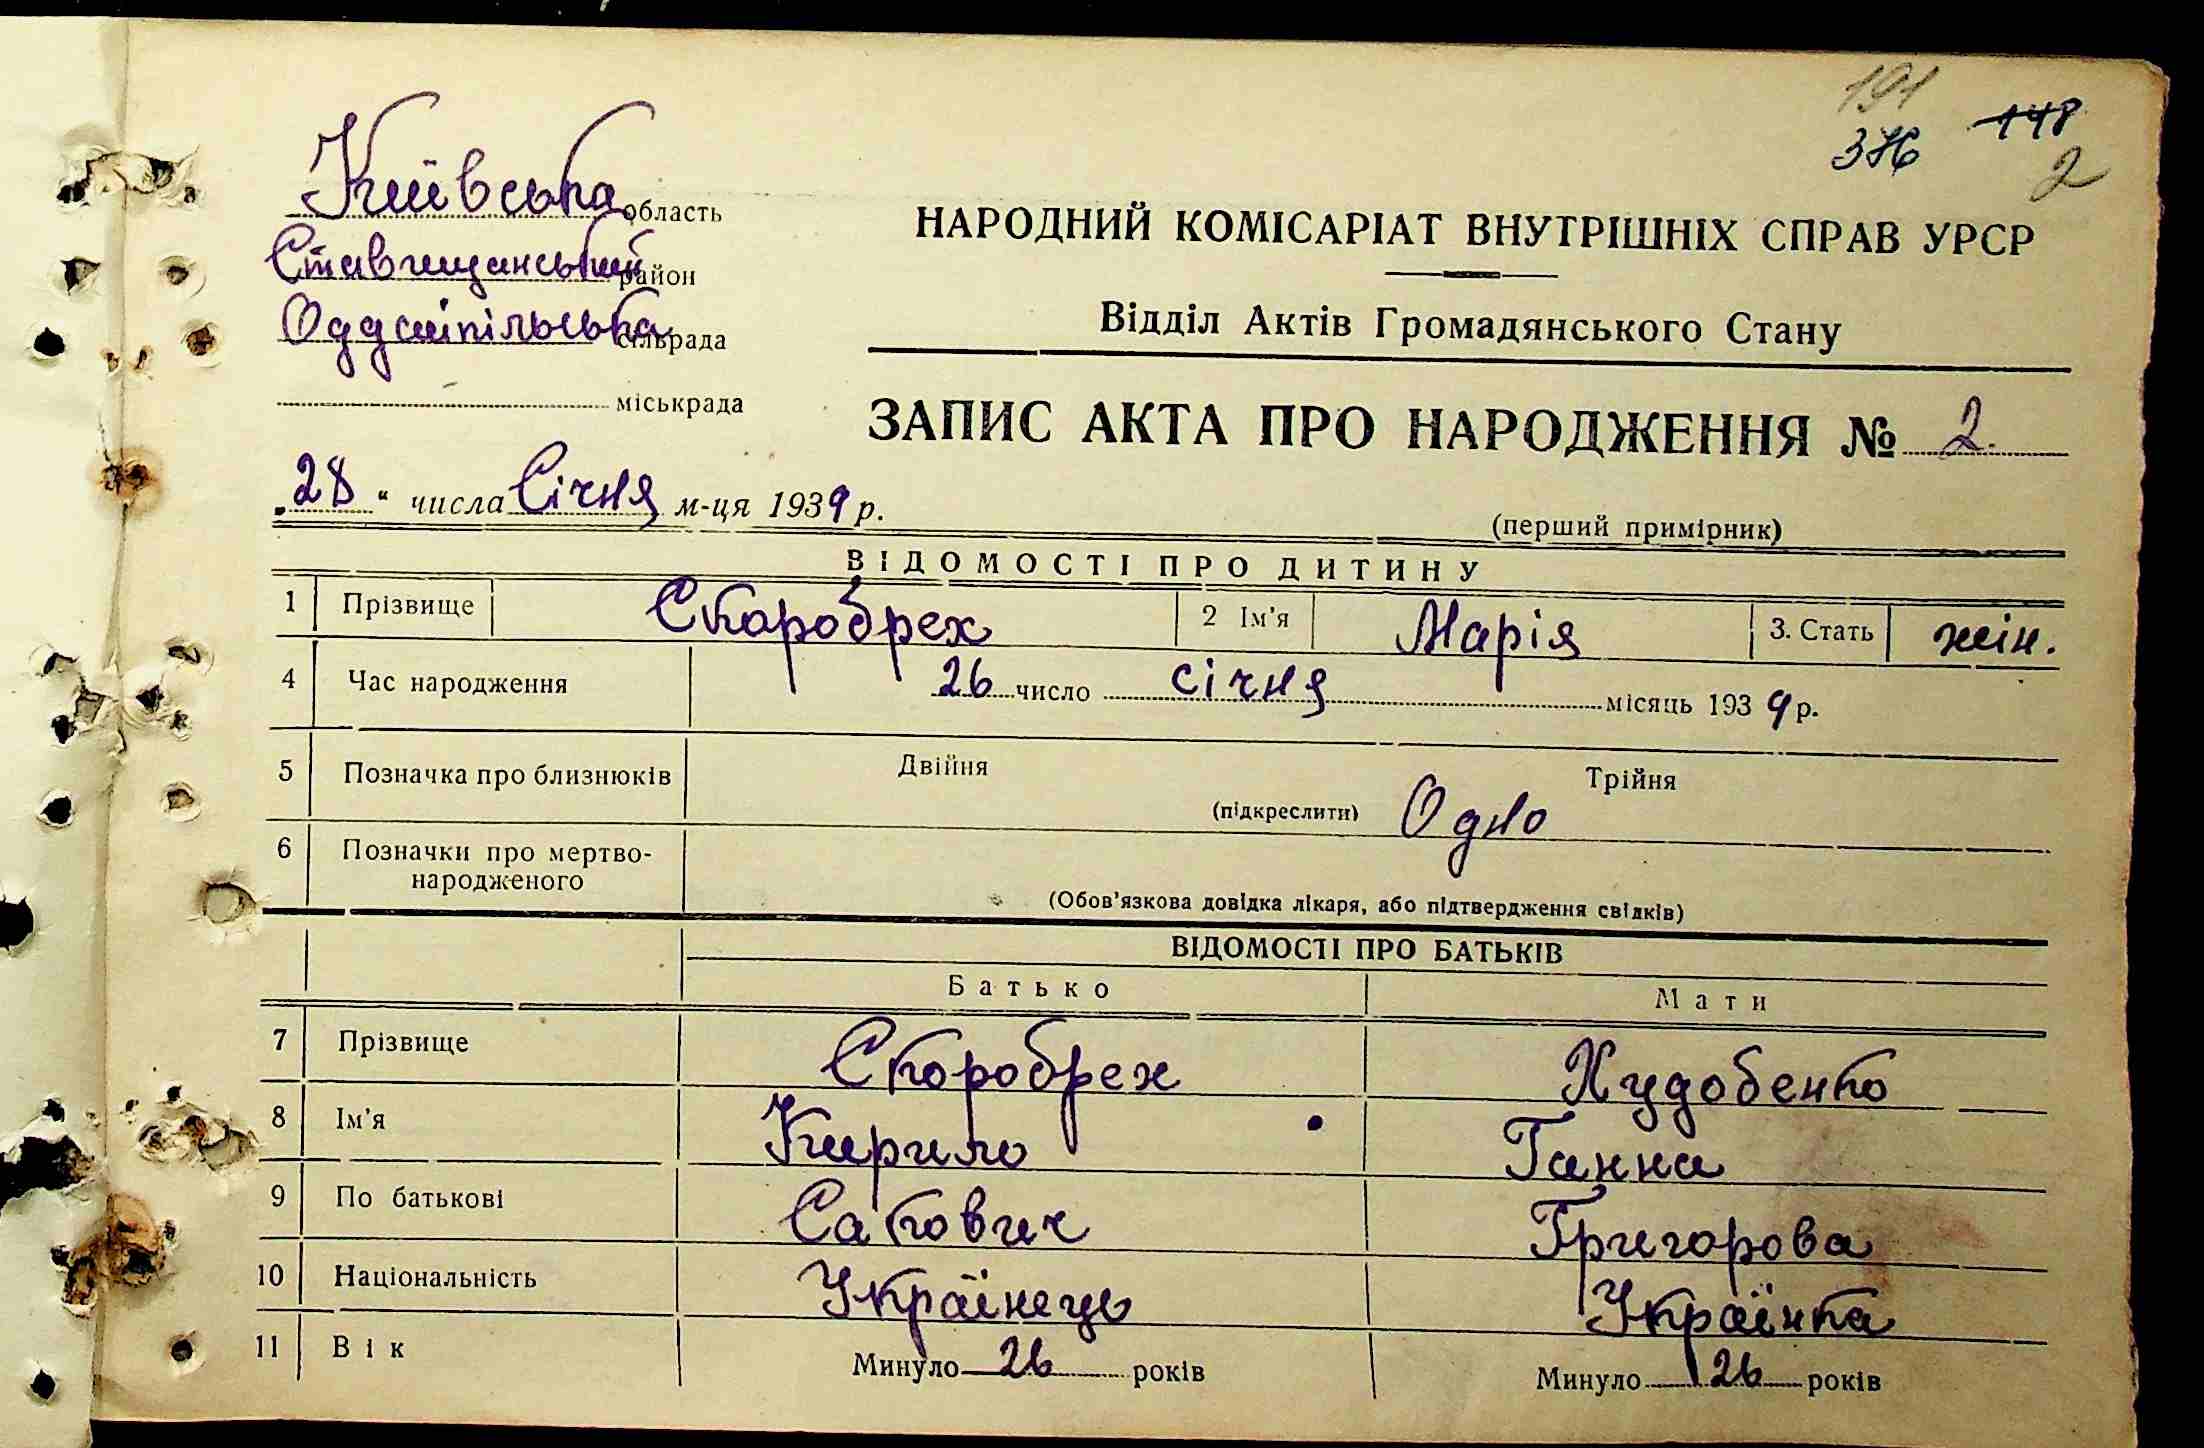 191
376 148
2
Київська область
Ставищанський район
сільрада
міськрада
НАРОДНИЙ КОМІСАРІАТ ВНУТРІШНІХ СПРАВ УРСР
Відділ Актів Громадянського Стану
ЗАПИС АКТА ПРО НАРОДЖЕННЯ № 2.
„28“ числа Січня м-ця 1939 р.
(перший примірник)
ВІДОМОСТІ ПРО ДИТИНУ
1 Прізвище Скоробрех 2 Ім'я Марія 3. Стать жін.
4 Час народження 26 число січня місяць 1939 р.
5 Позначка про близнюків Двійня Трійня
(підкреслити) Одно
6 Позначки про мертво-
народженого
(Обов'язкова довідка лікаря, або підтвердження свідків)
ВІДОМОСТІ ПРО БАТЬКІВ
Батько Мати
7 Прізвище Скоробрех Худобенко
8 Ім'я Кирило Ганна
9 По батькові Савович Григорова
10 Національність Українець Українка
11 Вік Минуло 26 років Минуло 26 років